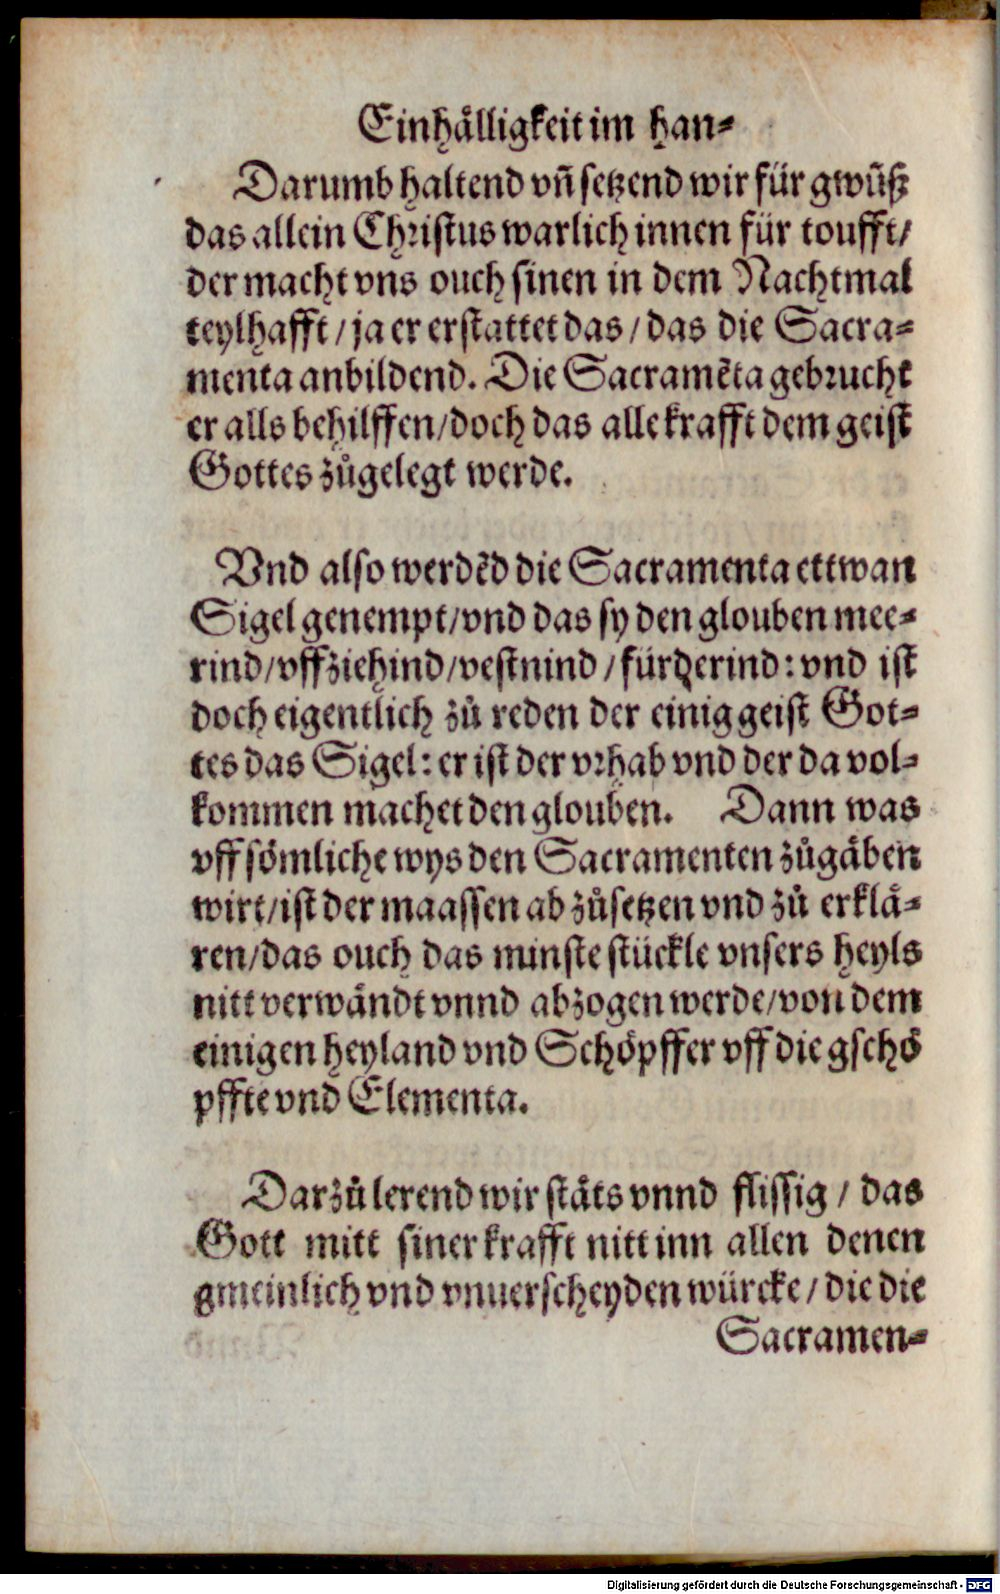 Einhälligkeit im han⸗
Darumb haltend vñ setzend wir für gwüß
das allein Christus warlich innen für toufft/
der macht vns ouch sinen in dem Nachtmal
teylhafft/ ja er erstattet das/ das die Sacra⸗
menta anbildend. Die Sacramẽta gebrucht
er alls behilffen/doch das alle krafft dem geist
Gottes zůgelegt werde.
Vnd also werdẽd die Sacramenta ettwan
Sigel genempt/vnd das sy den glouben mee⸗
rind/vffziehind/vestnind/fürderind: vnd ist
doch eigentlich zů reden der einig geist Got⸗
tes das Sigel: er ist der vrhab vnd der da vol⸗
kommen machet den glouben. Dann was
vff sömliche wys den Sacramenten zůgäben
wirt/ist der maassen ab zůsetzen vnd zů erklä⸗
ren/das ouch das minste stückle vnsers heyls
nitt verwändt vnnd abzogen werde/von dem
einigen heyland vnd Schöpffer vff die gschö
pffte vnd Elementa.
Darzů lerend wir stäts vnnd flissig/ das
Gott mitt siner krafft nitt inn allen denen
gmeinlich vnd vnuerscheyden würcke/ die die
Sacramen⸗
Digitalisierung gefördert durch die Deutsche Forschungsgemeinschaft - DFG